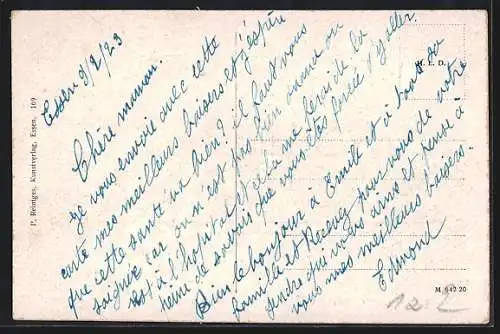 Essen 9/2/23
Chère maman.
Je vous envoie avec cette
carte mes meilleurs baisers et j'espère
que cette santé va bien? il faut vous
soigner car on n'est pas bien quand on
est à l'hopital et cela me ferai de la
peine de savoir que vous êtes
Bien le bonjour à Emile et à toute sa
famille et Recevez pour vous de votre
qui vous aime et pense à
vous mes meilleurs baisers.
Edmond
M. L. D.
P. Röntges, Kunstverlag, Essen. 169
M 642 20